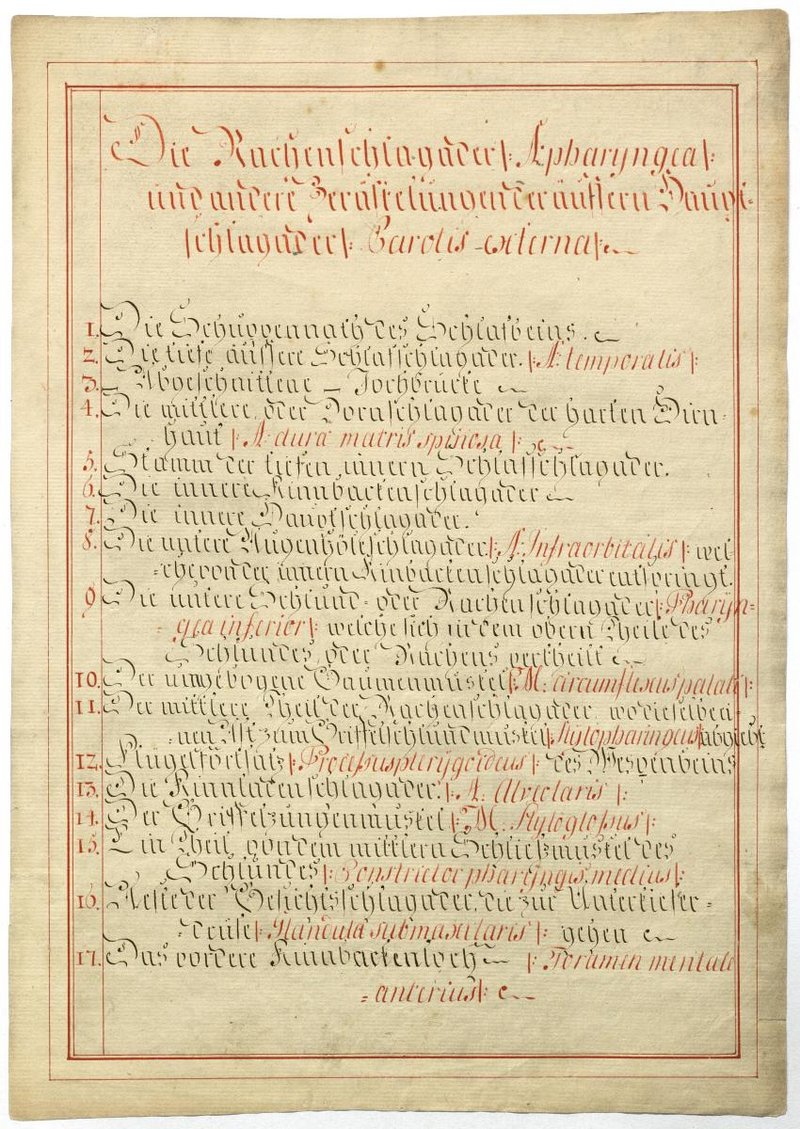 Die Rachenschlagader |: A. pharyngea :|
und andere Zerästelungen der äussern Haupt-
schlagader |: Carotis externa :|
1. Die Schuppennath des Schlafbeins.
2. Die tiefe äussere Schlafschlagader. |: A. temporalis :|
3. Abgeschnittene Jochbrücke
4. Die mittlere oder Dornschlagader der harten Hirn-
haut |: A. duræ matris spinosa :|
5. Stamm der tiefen innern Schlafschlagader.
6. Die innere Kinnbackenschlagader
7. Die innere Hauptschlagader.
8. Die untere Augenhöleschlagader |: A. Infraorbitalis :| wel-
che von der innern Kinbackenschlagader entspringt.
9. Die untere Schlund- oder Rachenschlagader |: Pharyn-
gea inferior :| welche sich in dem obern Theile des
Schlundes oder Rachens vertheilt
10. Der umgebogene Gaumenmuskel |: M. circumflexus palati :|
11. Der mittlere Theil der Rachenschlagader, wo dieselbe ei-
nen Ast zum Griffelschlundmuskel |: Stylopharingeus :| abgiebt
12. Flügelfortsatz |: Processus pterygoideus :| des Wespenbeins
13. Die Kinnladenschlagader. |: A. Alveolaris :|
14. Der Griffelzungenmuskel |: M. Styloglossus :|
15. Ein Theil von dem mittlern Schließmuskel des
Schlundes |: Constrictor pharyngis medius :|
16. Aeste der Gesichtsschlagader, die zur Unterkiefer-
drüse |: Glandula submaxilaris :| gehen
17. Das vordere Kinnbackenloch |: Foramen mentale
anterius :|